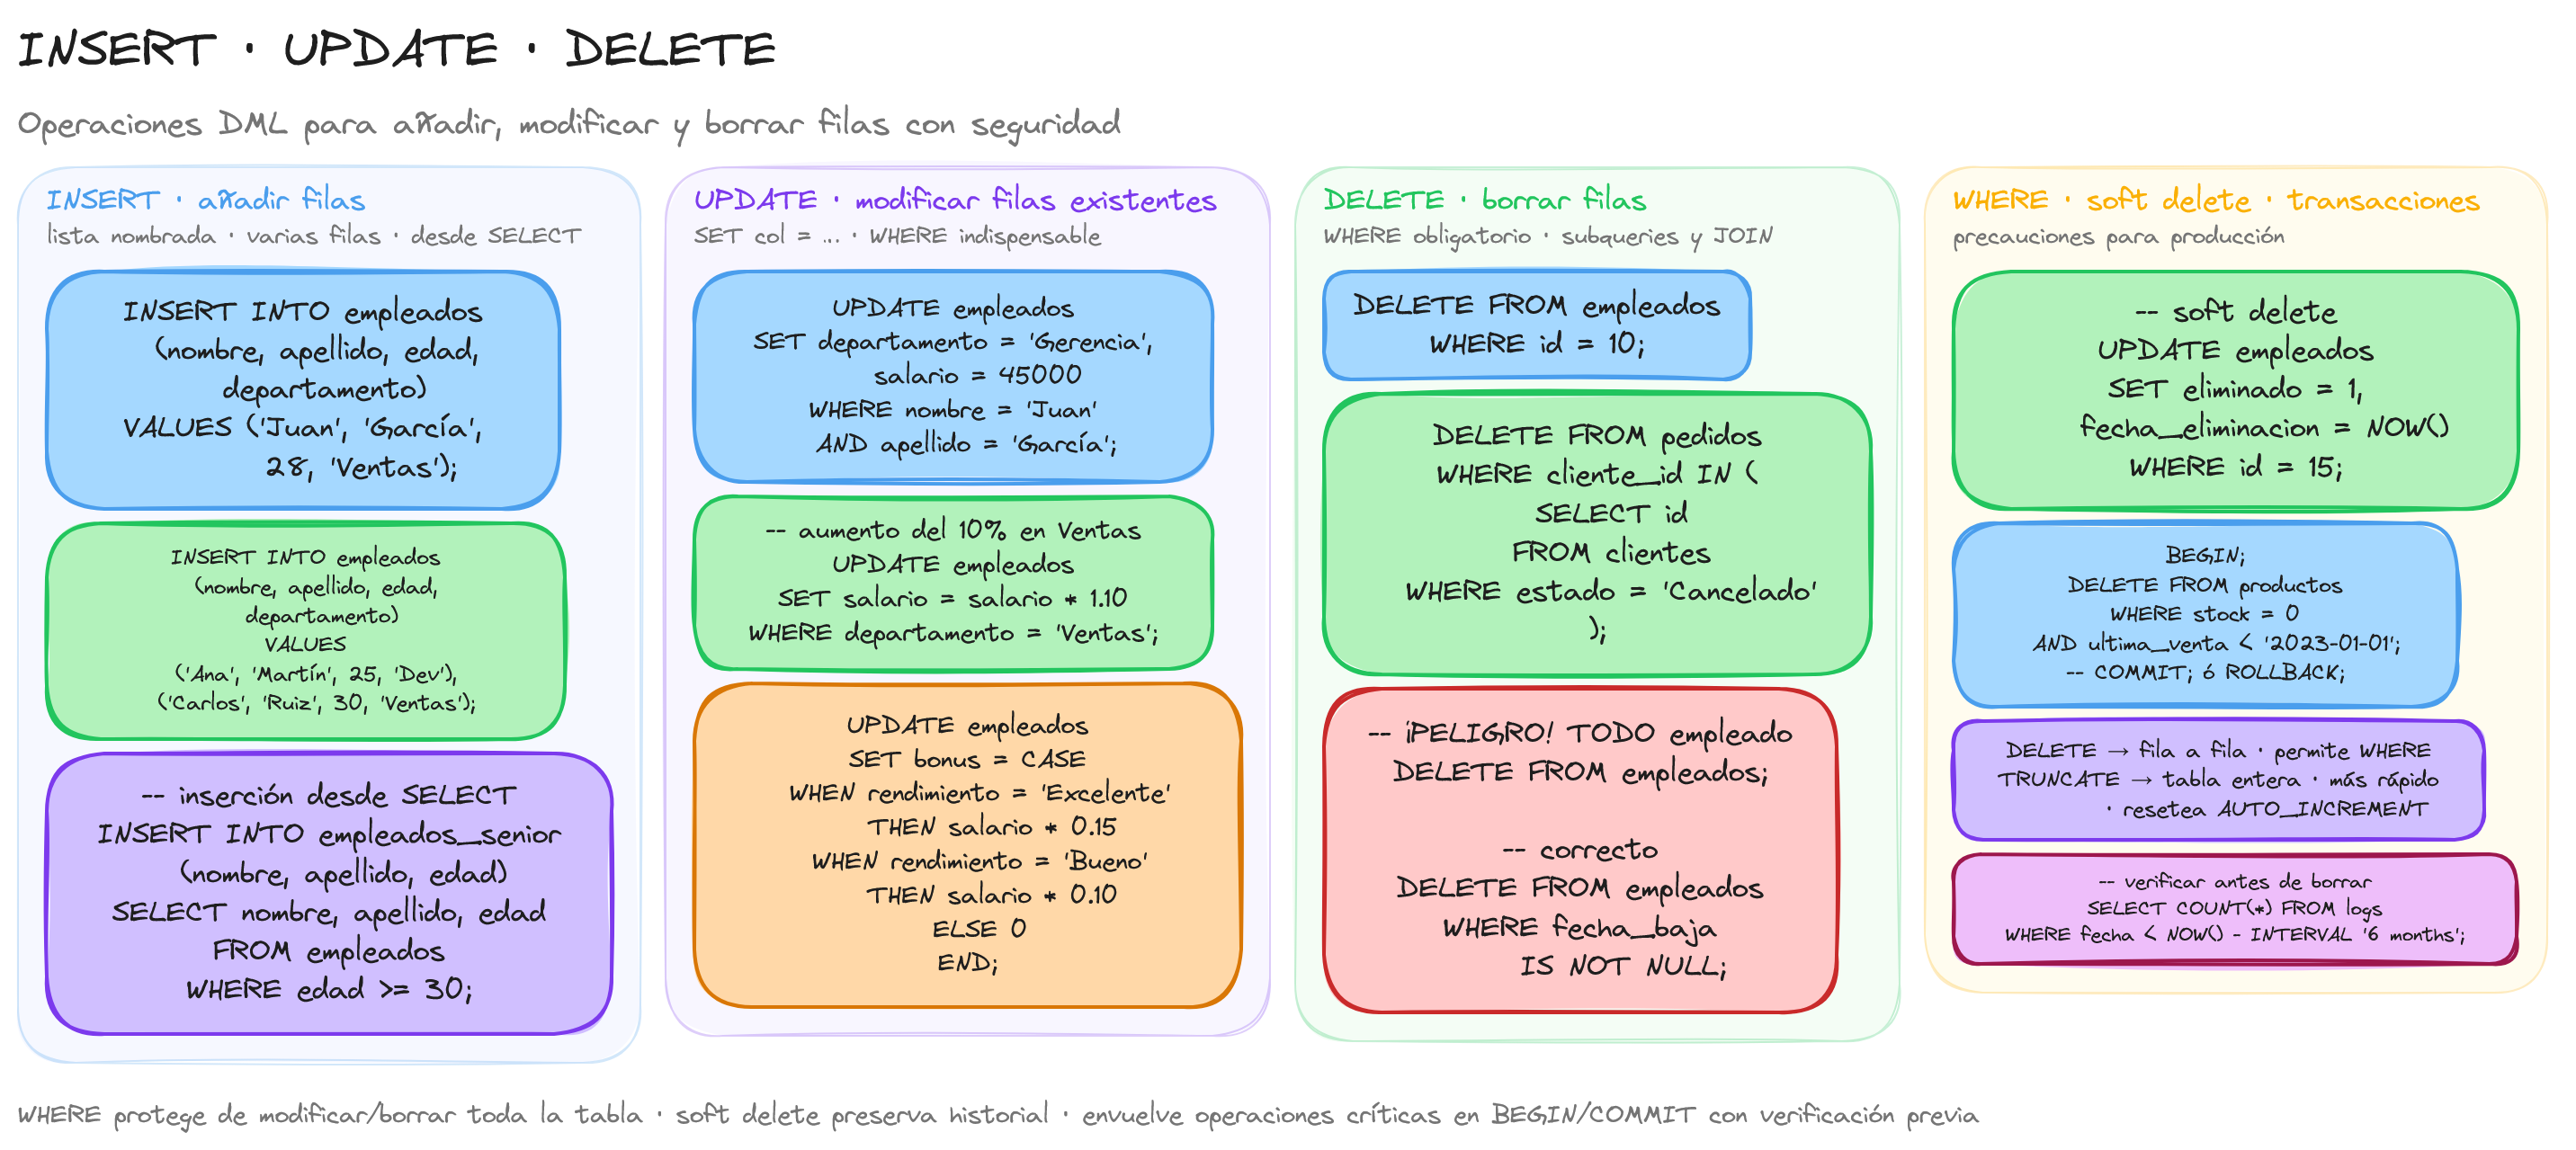 INSERT · UPDATE · DELETE
Operaciones DML para añadir, modificar y borrar filas con seguridad
INSERT · añadir filas
lista nombrada · varias filas · desde SELECT
INSERT INTO empleados
(nombre, apellido, edad,
departamento)
VALUES ('Juan', 'García',
28, 'Ventas');
INSERT INTO empleados
(nombre, apellido, edad,
departamento)
VALUES
('Ana', 'Martín', 25, 'Dev'),
('Carlos', 'Ruiz', 30, 'Ventas');
-- inserción desde SELECT
INSERT INTO empleados_senior
(nombre, apellido, edad)
SELECT nombre, apellido, edad
FROM empleados
WHERE edad >= 30;
UPDATE · modificar filas existentes
SET col = ... · WHERE indispensable
UPDATE empleados
SET departamento = 'Gerencia',
salario = 45000
WHERE nombre = 'Juan'
AND apellido = 'García';
-- aumento del 10% en Ventas
UPDATE empleados
SET salario = salario * 1.10
WHERE departamento = 'Ventas';
UPDATE empleados
SET bonus = CASE
WHEN rendimiento = 'Excelente'
THEN salario * 0.15
WHEN rendimiento = 'Bueno'
THEN salario * 0.10
ELSE 0
END;
DELETE · borrar filas
WHERE obligatorio · subqueries y JOIN
DELETE FROM empleados
WHERE id = 10;
DELETE FROM pedidos
WHERE cliente_id IN (
SELECT id
FROM clientes
WHERE estado = 'Cancelado'
);
-- ¡PELIGRO! TODO empleado
DELETE FROM empleados;
-- correcto
DELETE FROM empleados
WHERE fecha_baja
IS NOT NULL;
WHERE · soft delete · transacciones
precauciones para producción
-- soft delete
UPDATE empleados
SET eliminado = 1,
fecha_eliminacion = NOW()
WHERE id = 15;
BEGIN;
DELETE FROM productos
WHERE stock = 0
AND ultima_venta < '2023-01-01';
-- COMMIT; ó ROLLBACK;
DELETE → fila a fila · permite WHERE
TRUNCATE → tabla entera · más rápido
· resetea AUTO_INCREMENT
-- verificar antes de borrar
SELECT COUNT(*) FROM logs
WHERE fecha < NOW() - INTERVAL '6 months';
WHERE protege de modificar/borrar toda la tabla · soft delete preserva historial · envuelve operaciones críticas en BEGIN/COMMIT con verificación previa